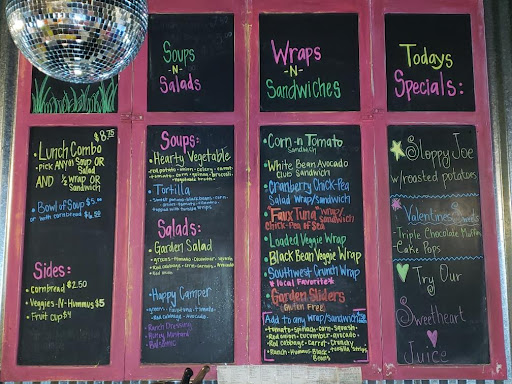 $8.75
Lunch Combo
• pick ANY Soup OR
Salad
AND ½ Wrap OR
Sandwich
• Bowl of Soup $5.00
or with cornbread
Sides:
• cornbread $2.50
• Veggies-N-Hummus $5
• Fruit cup $4
Soups
-N-
Salads
Soups:
• Hearty Vegetable
• Tortilla
Salads:
• Garden Salad
• Happy Camper
Ranch Dressing
Balsamic
Wraps
-N-
Sandwiches
• Corn-n-Tomato
Sandwich
• White Bean Avocado
Club Sandwich
• Cranberry Chick-Pea
Salad Wrap/Sandwich
• "Faux Tuna" Wrap/
Sandwich
Chick-Pea of Sea
• Loaded Veggie Wrap
• Black Bean Veggie Wrap
• Southwest Crunch Wrap
*local Favorite*
• Garden Sliders
(Gluten Free)
Add to any Wrap/Sandwich
• Tomato • Spinach • Corn • Squash •
Red onion • Cucumber • Avocado •
Red Cabbage • Carrot • Crunchy
Tortilla Strips
• Ranch • Hummus • Black
Beans
Todays
Specials:
Sloppy Joe
w/roasted potatoes
Valentines Sweets
• Triple Chocolate Muffin
• Cake Pops
Try Our
Sweetheart
Juice